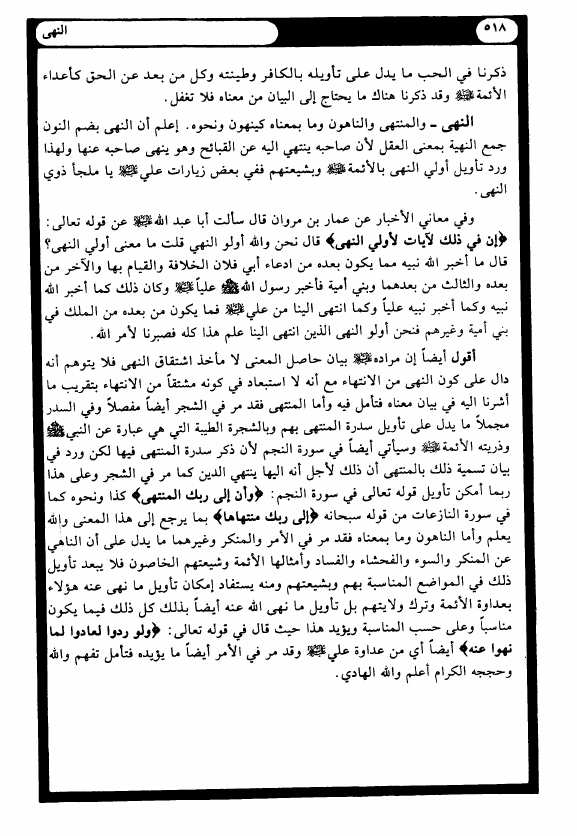 ٥١٨
النهى
ذكرنا في الحب ما يدل على تأويله بالكافر وطينته وكل من بعد عن الحق كأعداء
الأئمة عليهم السلام وقد ذكرنا هناك ما يحتاج إلى البيان من معناه فلا تغفل.
النهى ـ والمنتهى والناهون وما بمعناه كينهون ونحوه. إعلم أن النهى بضم النون
جمع النهية بمعنى العقل لأن صاحبه ينتهي اليه عن القبائح وهو ينهى صاحبه عنها ولهذا
ورد تأويل أولي النهى بالأئمة عليهم السلام وبشيعتهم ففي بعض زيارات علي عليه السلام يا ملجأ ذوي
النهى.
وفي معاني الأخبار عن عمار بن مروان قال سألت أبا عبد الله عليه السلام عن قوله تعالى:
﴿إن في ذلك لآيات لأولي النهى﴾ قال نحن والله أولو النهي قلت ما معنى أولي النهى؟
قال ما أخبر الله نبيه مما يكون بعده من ادعاء أبي فلان الخلافة والقيام بها والآخر من
بعده والثالث من بعدهما وبني أمية فأخبر رسول الله ﷺ علياً عليه السلام وكان ذلك كما أخبر الله
نبيه وكما أخبر نبيه علياً وكما انتهى الينا من علي عليه السلام فما يكون من بعده من الملك في
بني أمية وغيرهم فنحن أولو النهى الذين انتهى الينا علم هذا كله فصبرنا لأمر الله.
أقول أيضاً إن مراده عليه السلام بيان حاصل المعنى لا مأخذ اشتقاق النهى فلا يتوهم أنه
دال على كون النهى من الانتهاء مع أنه لا استبعاد في كونه مشتقاً من الانتهاء بتقريب ما
أشرنا اليه في بيان معناه فتأمل فيه وأما المنتهى فقد مر في الشجر أيضاً مفصلاً وفي السدر
مجملاً ما يدل على تأويل سدرة المنتهى بهم وبالشجرة الطيبة التي هي عبارة عن النبي ﷺ
وذريته الأئمة عليهم السلام وسيأتي أيضاً في سورة النجم لأن ذكر سدرة المنتهى فيها لكن ورد في
بيان تسمية ذلك بالمنتهى أن ذلك لأجل أنه اليها ينتهي الدين كما مر في الشجر وعلى هذا
ربما أمكن تأويل قوله تعالى في سورة النجم: ﴿وأن إلى ربك المنتهى﴾ كذا ونحوه كما
في سورة النازعات من قوله سبحانه ﴿إلى ربك منتهاها﴾ بما يرجع إلى هذا المعنى والله
يعلم وأما الناهون وما بمعناه فقد مر في الأمر والمنكر وغيرهما ما يدل على أن الناهي
عن المنكر والسوء والفحشاء والفساد وأمثالها الأئمة وشيعتهم الخاصون فلا يبعد تأويل
ذلك في المواضع المناسبة بهم وبشيعتهم ومنه يستفاد إمكان تأويل ما نهى عنه هؤلاء
بعداوة الأئمة وترك ولايتهم بل تأويل ما نهى الله عنه أيضاً بذلك كل ذلك فيما يكون
مناسباً وعلى حسب المناسبة ويؤيد هذا حيث قال في قوله تعالى: ﴿ولو ردوا لعادوا لما
نهوا عنه﴾ أيضاً أي من عداوة علي عليه السلام وقد مر في الأمر أيضاً ما يؤيده فتأمل تفهم والله
وحججه الكرام أعلم والله الهادي.